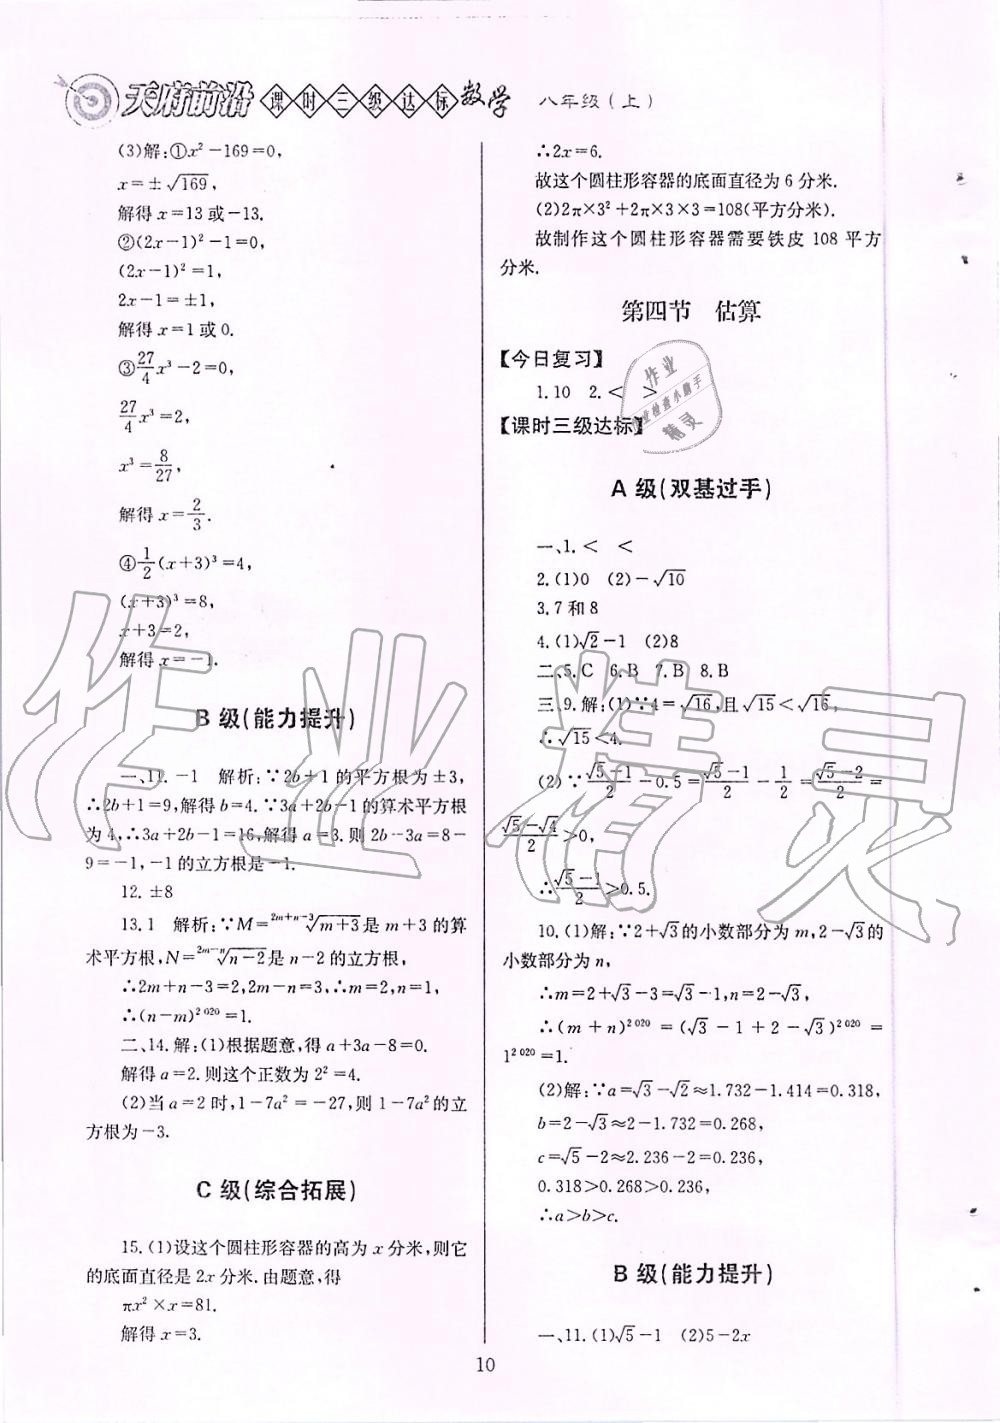 天府前沿 课时三级达标 数学 八年级(上)
(3)解:①x²-169=0,
x=±√169,
解得 x=13 或-13.
②(2x-1)²-1=0,
(2x-1)²=1,
2x-1=±1,
解得 x=1 或 0.
③27/4x³-2=0,
27/4x³=2,
x³=8/27,
解得 x=2/3.
④1/2(x+3)³=4,
(x+3)³=8,
x+3=2,
解得 x=-1.
B 级(能力提升)
一、11. -1 解析:∵2b+1 的平方根为±3,
∴2b+1=9,解得 b=4.∵3a+2b-1的算术平方根
为 4,∴3a+2b-1=16,解得 a=3.则 2b-3a=8-
9=-1,-1 的立方根是-1.
12. ±8
13.1 解析:∵M=²ᵐ⁺ⁿ⁻³√(m+3)是 m+3 的算
术平方根,N=²ᵐ⁻ⁿ√(n-2)是 n-2 的立方根,
∴2m+n-3=2,2m-n=3,∴m=2,n=1,
∴(n-m)²⁰²⁰=1.
二、14.解:(1)根据题意,得 a+3a-8=0.
解得 a=2.则这个正数为 2²=4.
(2)当 a=2 时,1-7a²=-27,则 1-7a²的立
方根为-3.
C 级(综合拓展)
15.(1)设这个圆柱形容器的高为 x 分米,则它
的底面直径是 2x 分米.由题意,得
πx²×x=81.
解得 x=3.
∴2x=6.
故这个圆柱形容器的底面直径为 6 分米.
(2)2π×3²+2π×3×3=108(平方分米).
故制作这个圆柱形容器需要铁皮 108 平方
分米.
第四节 估算
【今日复习】
1.10 2.< >
【课时三级达标】
A 级(双基过手)
一、1.< <
2.(1)0 (2)-√10
3.7 和 8
4.(1)√2-1 (2)8
二、5.C 6.B 7.B 8.B
三、9.解:(1)∵4=√16,且√15<√16,
∴√15<4.
(2)∵(√5-1)/2-0.5=(√5-1)/2-1/2=(√5-2)/2=
(√5-√4)/2>0,
∴(√5-1)/2>0.5.
10.(1)解:∵2+√3的小数部分为 m,2-√3的
小数部分为 n,
∴m=2+√3-3=√3-1,n=2-√3,
∴(m+n)²⁰²⁰=(√3-1+2-√3)²⁰²⁰=
1²⁰²⁰=1.
(2)解:∵a=√3-√2≈1.732-1.414=0.318,
b=2-√3≈2-1.732=0.268,
c=√5-2≈2.236-2=0.236,
0.318>0.268>0.236,
∴a>b>c.
B 级(能力提升)
一、11.(1)√5-1 (2)5-2x
10
作业精灵
作业
业检查小助手
精灵